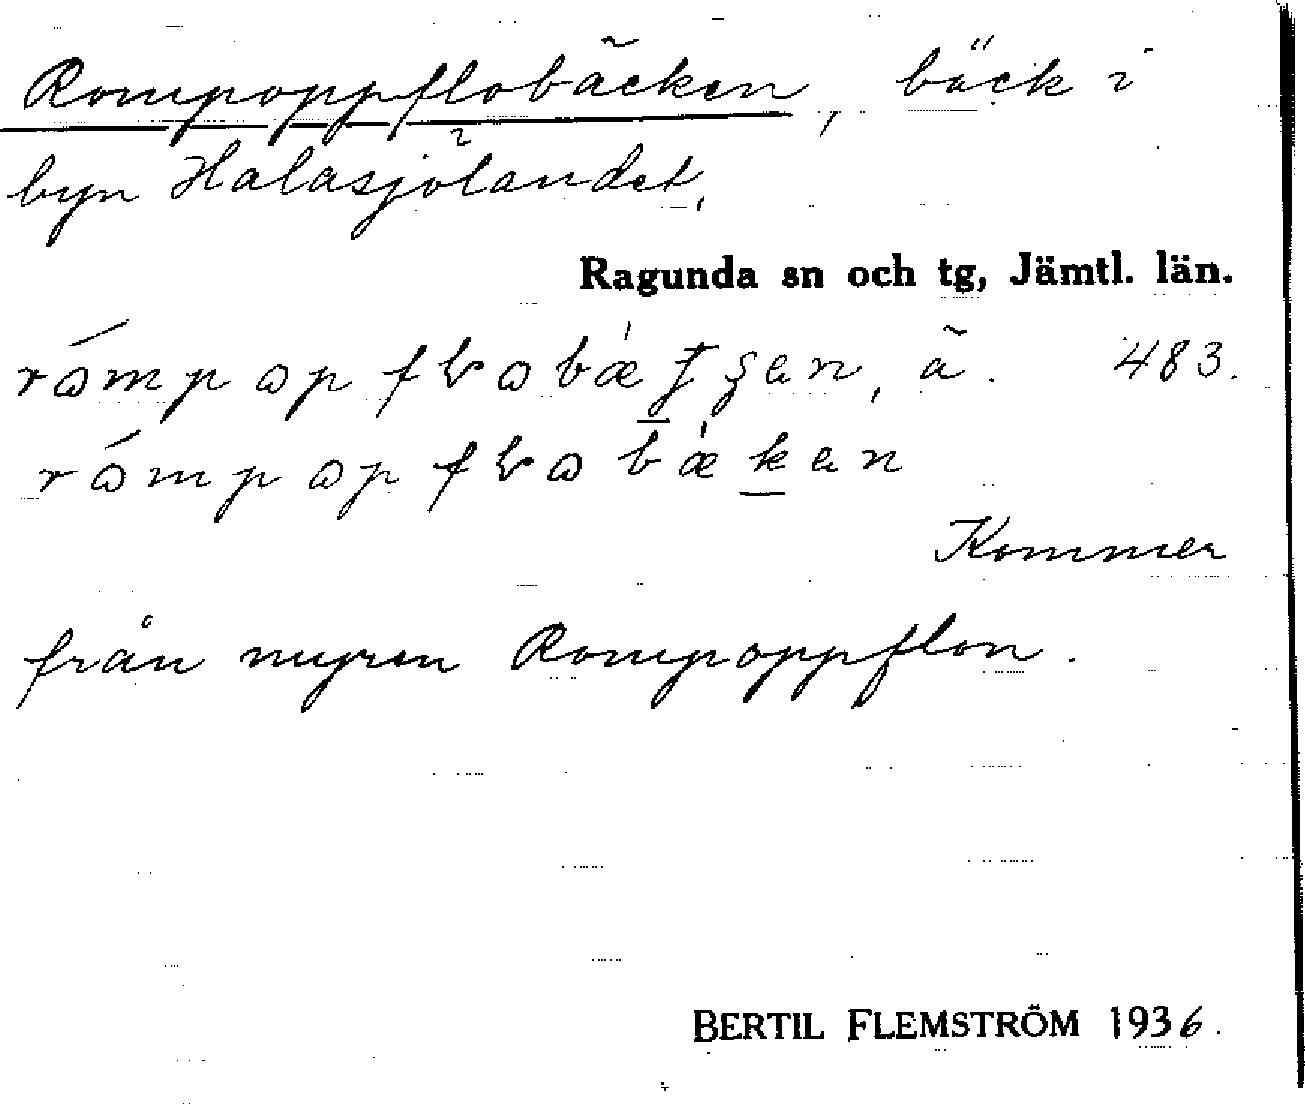 Rompoppflobäcken, bäck i
byn Halasjölandet,
Ragunda sn och tg, Jämtl. län.
ä. 483.
Kommer
från myren Rompoppflon.
BERTIL FLEMSTRÖM 1936.